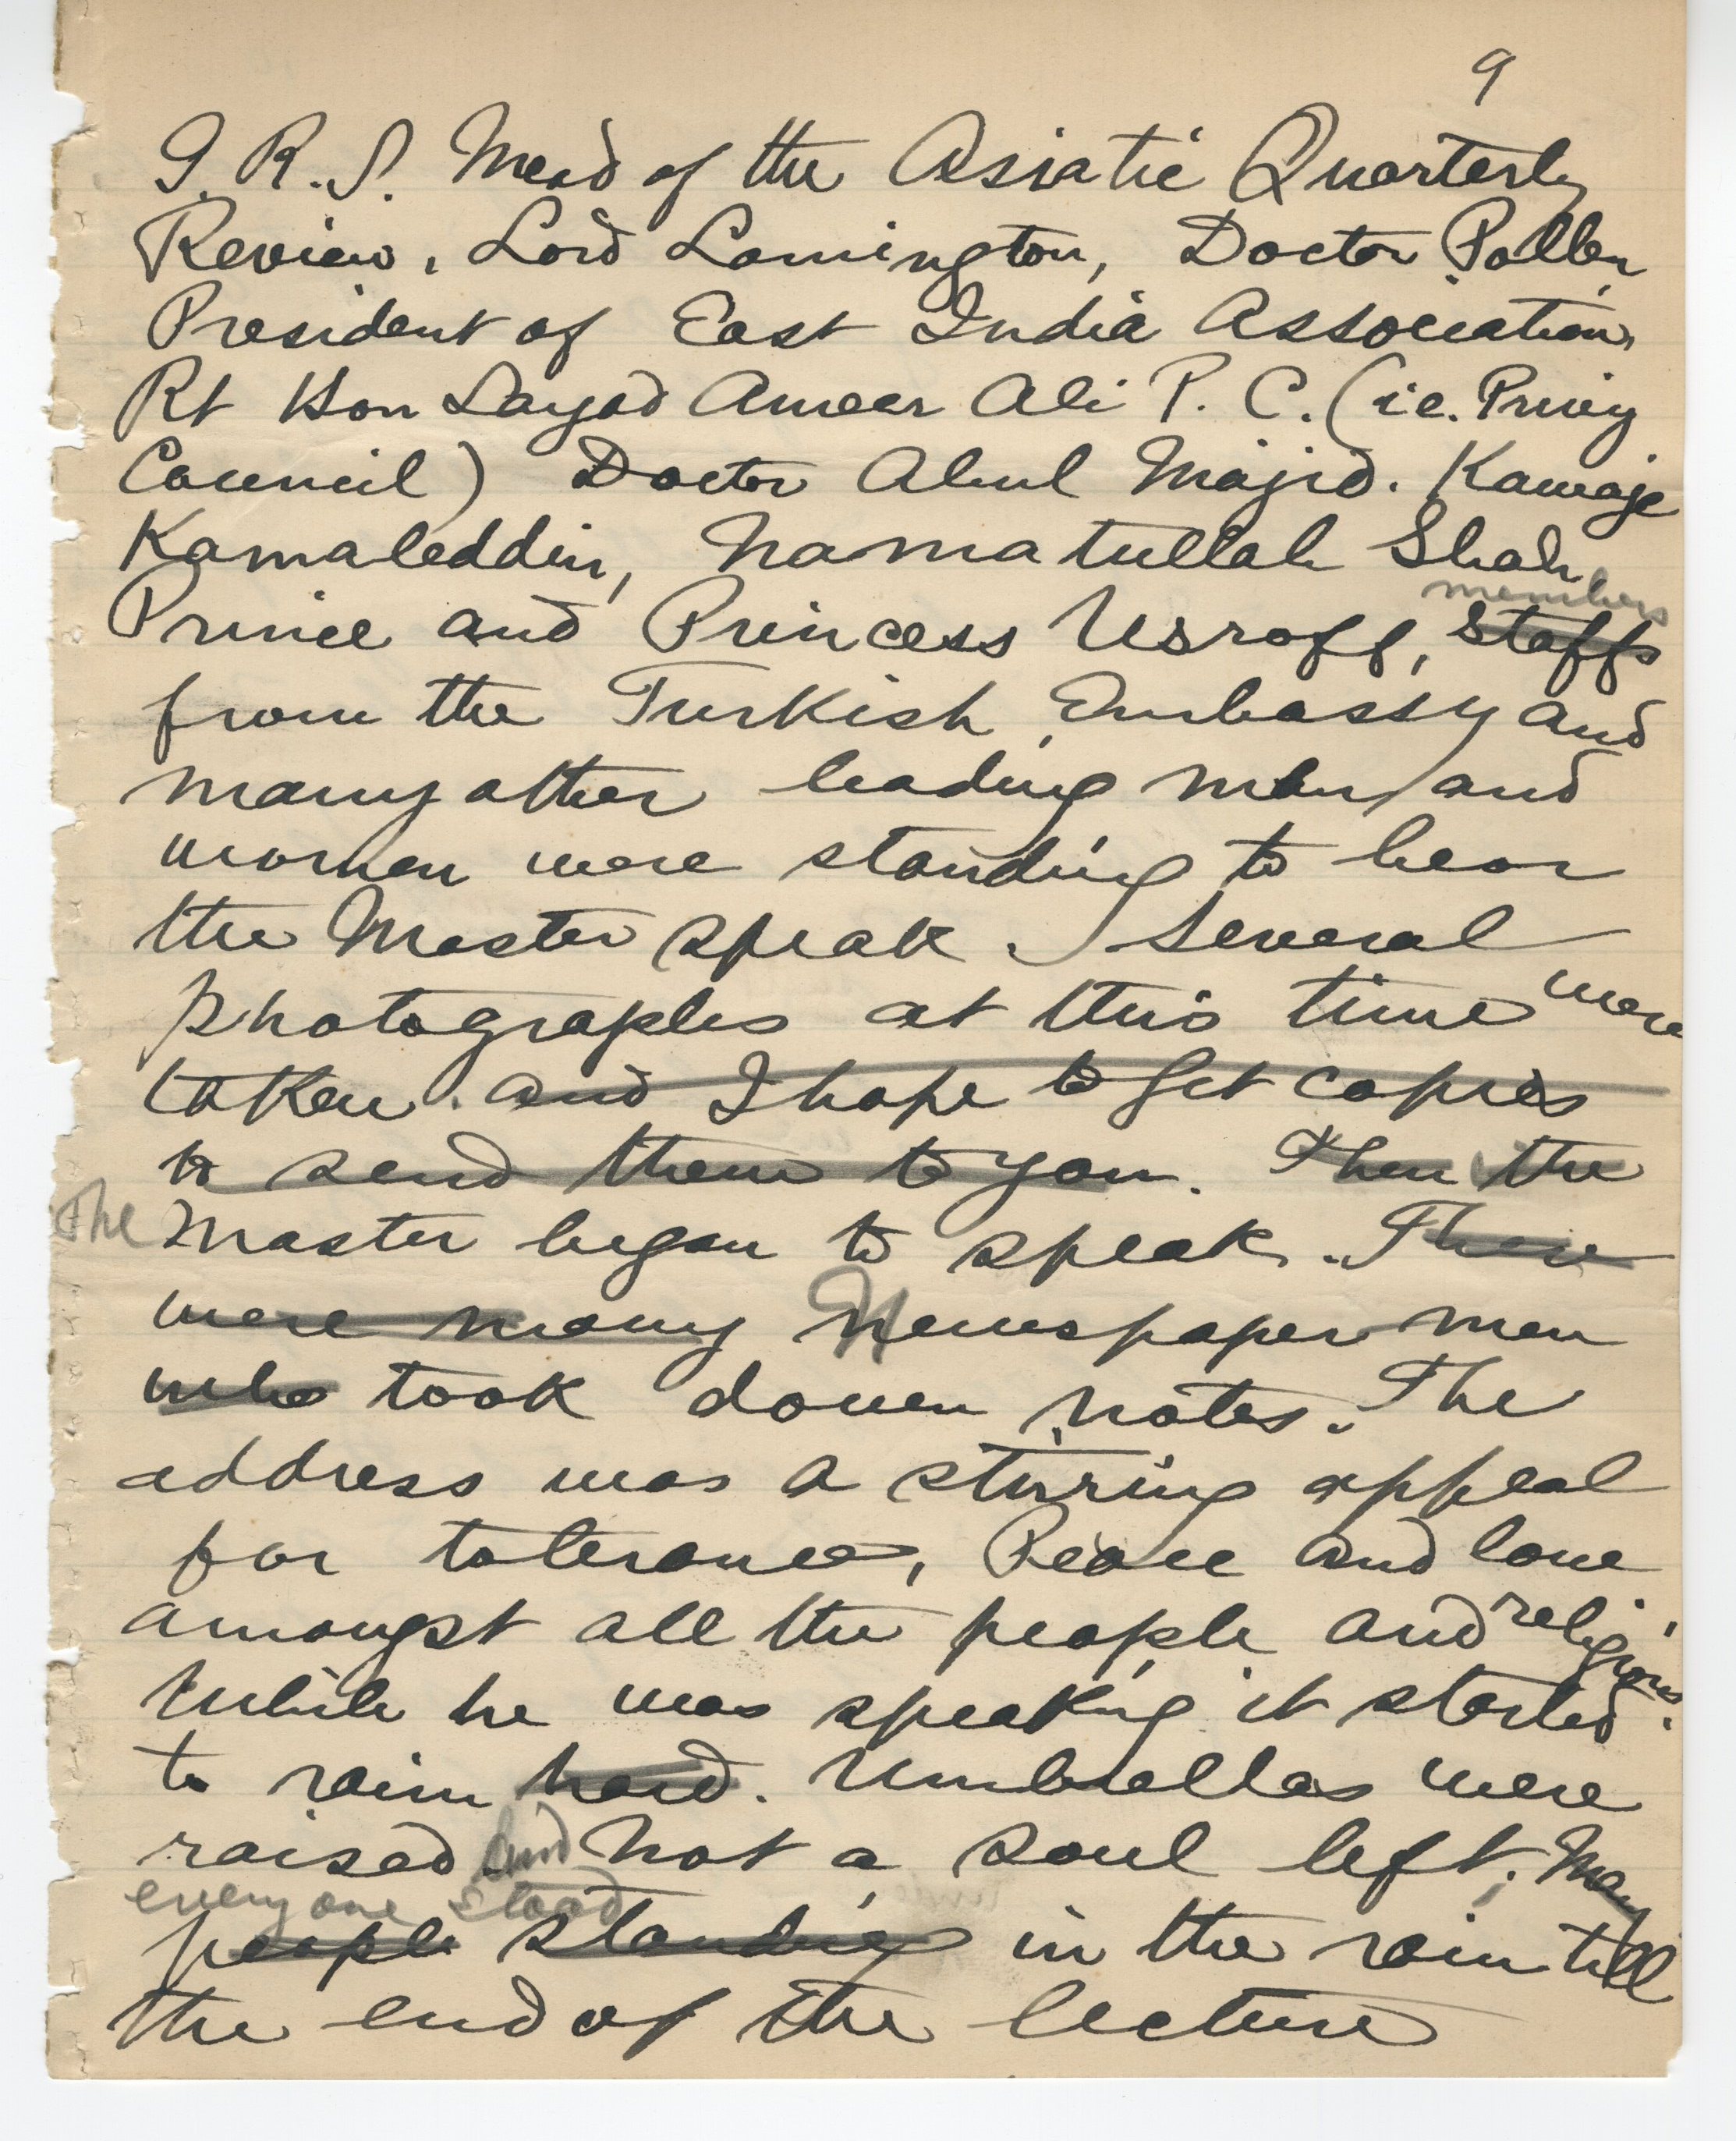 9
G. R. S. Mead of the Asiatic Quarterly
Review, Lord Lamington, Doctor Pollen,
President of East India Association,
Rt Hon Sayad Ameer Ali P. C. (ie. Privy
Council) Doctor Abul Majid. Kawaje
Kamaleddin, Namatullah Shah,
members
Prince and Princess Usroff, staffs
from the Turkish Embassy and
many other leading men and
women were standing to hear
the Master speak. Several
photographs at this time were
taken. and I hope to get copies
to send them to you. Then the
The Master began to speak. There
were many Newspaper men
who took down notes. The
address was a stirring appeal
for tolerance, Peace and love
amongst all the people and religions.
While he was speaking it started
to rain hard. Umbrellas were
raised and not a soul left. Many
everyone stood
people standing in the rain till
the end of the lecture